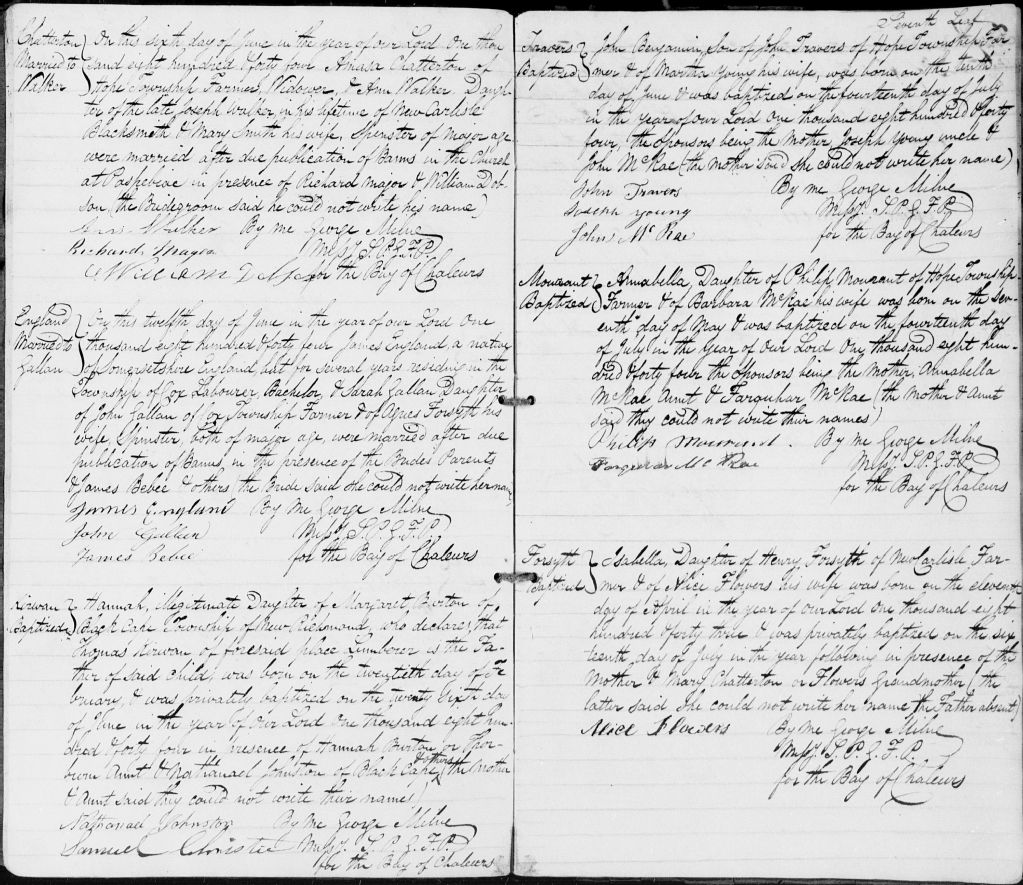 Chatterton
Married to
Walker
On this sixth day of June in the year of our Lord One thou
sand eight hundred & forty four Amasa Chatterton of
Hope Township Farmer, Widower, & Ann Walker Daugh-
ter of the late Joseph Walker, in his lifetime of New Carlisle
Blacksmith & Mary Smith his wife, Spinster of major age
were married after due publication of Banns in the Church
at Paspebeac in presence of Richard Major & William Dob-
son (the Bridegroom said he could not write his name)
Ann Walker By me George Milne
Richard Major Missy. S. P. G. F. P.
William for the Bay of Chaleurs
England
Married to
Gallan
On this twelfth day of June in the year of our Lord One
thousand eight hundred & forty four James England a native
of Somersetshire England but for several years residing in the
Township of Cox Labourer, Bachelor, & Sarah Gallan Daughter
of John Gallan of Cox Township Farmer & of Agnes Forsyth his
wife, Spinster, both of major age, were married after due
publication of Banns, in the presence of the Brides Parents
& James Bebee & others the Bride said she could not write her name
James England By Me George Milne
John Gallan Missy. S. P. G. F. P.
James Bebee for the Bay of Chaleurs
Kirwan
Baptized
Hannah, illegitimate Daughter of Margaret Burton of
Black Cape Township of New Richmond, who declares that
Thomas Kirwan of foresaid place Lumberer is the Fa-
ther of said child, was born on the twentieth day of Fe
bruary, & was privatly baptized on the twenty sixth day
of June in the year of Our Lord One thousand eight hun-
dred & forty four in presence of Hannah Burton or Thor-
burn Aunt & Nathanael Johnston of Black Cape & others (the mother
& Aunt said they could not write their names)
Nathanael Johnston By Me George Milne
Samuel Christie Missy. S. P. G. F. P.
for the Bay of Chaleurs
Seventh Leaf
Travers
Baptized
John Benjamin, Son of John Travers of Hope Township Far
mer & of Martha Young his wife, was born on the tenth
day of June & was baptized on the fourteenth day of July
in the year of our Lord One thousand eight hundred & forty
four, the Sponsors being the Mother Joseph Young uncle &
John McRae (the mother said she could not write her name)
John Travers By me George Milne
Joseph Young Missy. S. P. G. F. P.
John McRae for the Bay of Chaleurs
Mourant
Baptized
Annabella, Daughter of Philip Mourant of Hope Township
Farmer & of Barbara McRae his wife was born on the sev-
enth day of May & was baptized on the fourteenth day
of July in the Year of Our Lord One thousand eight hun-
dred & forty four the Sponsors being the Mother, Annabella
McRae Aunt & Farquhar McRae (the Mother & Aunt
said they could not write their names)
Philip Mourant. By me George Milne
Farquhar McRae Missy. S. P. G. F. P.
for the Bay of Chaleurs
Forsyth
Baptized
Isabella, Daughter of Henry Forsyth of New Carlisle Far-
mer & of Alice Flowers his wife was born on the eleventh
day of April in the year of our Lord One thousand eight
hundred & forty three & was privatly baptized on the six
teenth day of July in the year following in presence of the
Mother & Mary Chatterton or Flowers Grandmother (the
latter said she could not write her name the Father absent)
Alice Flowers By Me George Milne
Missy. S. P. G. F. P.
for the Bay of Chaleurs